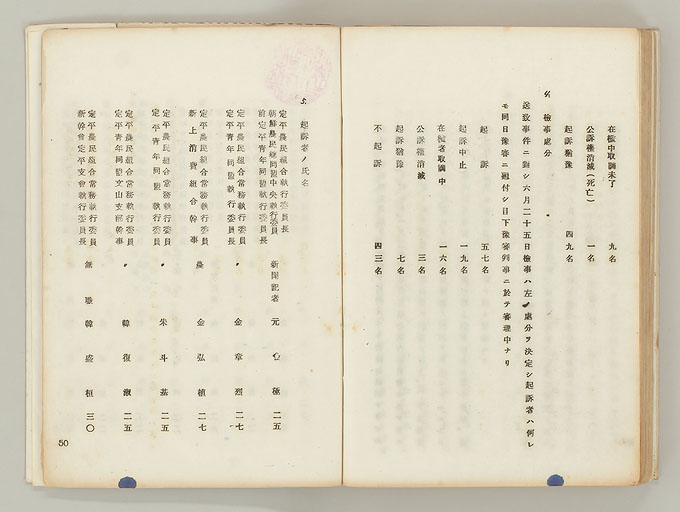 在檢中取調未了 九名
公訴權消滅(死亡) 一名
起訴猶豫 四九名
4、檢事處分
送致事件ニ對シ六月二十五日檢事ハ左ノ處分ヲ決定シ起訴者ハ何レ
モ同日豫審ニ廻付シ目下豫審判事ニ於テ審理中ナリ
起訴 五七名
起訴中止 一九名
在檢者取調中 一六名
公訴權消滅 三名
起訴猶豫 七名
不起訴 四三名
5、起訴者ノ氏名
定平農民組合執行委員長
朝鮮農民總同盟中央執行委員 新聞記者 元 心 極 二五
前定平青年同盟執行委員長
定平農民組合常務執行委員
定平青年同盟執行委員長 〃 金 章 二七
定平農民組合常務執行委員
新上消費組合幹事 農 金 弘 植 二七
定平農民組合常務執行委員
定平青年同盟執行委員 〃 朱 斗 基 二五
定平農民組合常務執行委員
定平青年同盟文山支部幹事 〃 韓 復 淑 二五
定平農民組合常務執行委員長
新幹會定平支會執行委員長 無職 韓 盛 桓 三〇
50